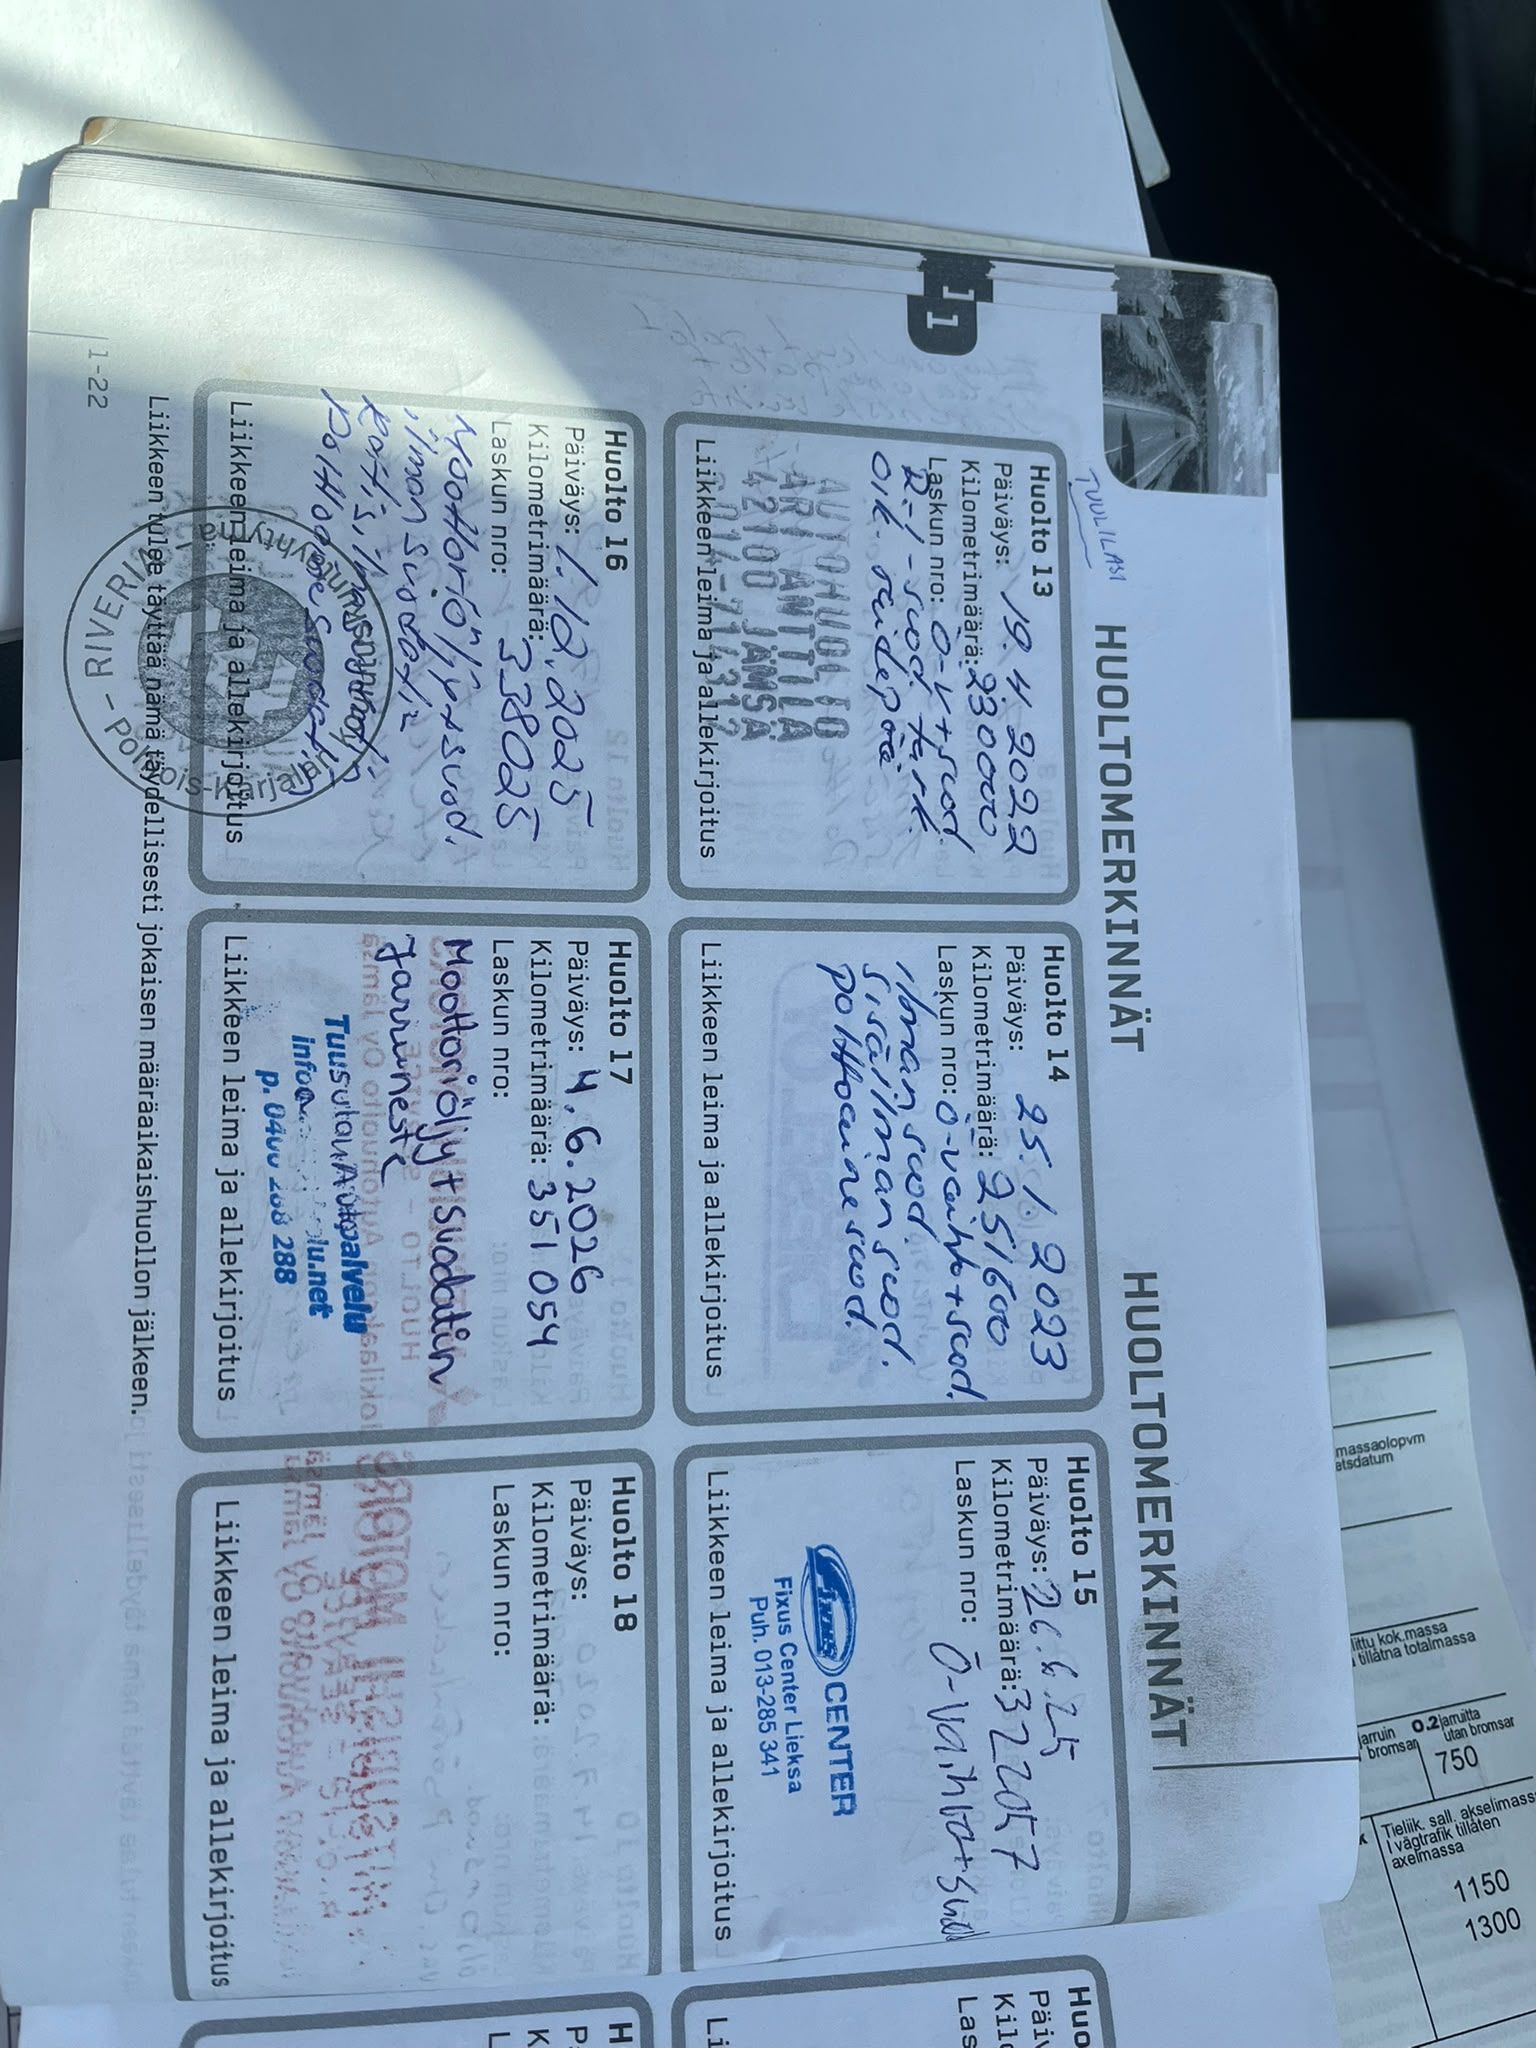 TUULILASI
HUOLTOMERKINNÄT
HUOLTOMERKINNÄT
11
Huolto 13
Päiväys: 19.4.2022
Kilometrimäärä: 230000
Laskun nro: Ö-V+suod
R-i-suod tark.
oik. raidepää
AUTOHUOLTO
ARI ANTTILA
42100 JÄMSÄ
Liikkeen leima ja allekirjoitus
Huolto 14
Päiväys: 25.1.2023
Kilometrimäärä: 251600
Laskun nro: Ö-vaihto+suod.
ilman suod.
sisäilman suod.
polttoainesuod.
Liikkeen leima ja allekirjoitus
Huolto 15
Päiväys: 26.6.25
Kilometrimäärä: 322057
Laskun nro: Ö-vaihto+suod
FIXUS CENTER
Fixus Center Lieksa
Puh. 013-285 341
Liikkeen leima ja allekirjoitus
Huolto 16
Päiväys: 1.10.2025
Kilometrimäärä: 338025
Laskun nro:
Moottoriöljy+suod.
ilmansuodatin
Raitisilmasuodatin
Polttoainesuodatin
Liikkeen leima ja allekirjoitus
RIVERIA - Pohjois-Karjalan koulutuskuntayhtymä
Huolto 17
Päiväys: 4.6.2026
Kilometrimäärä: 351054
Laskun nro:
Moottoriöljy+suodatin
Jarruneste
Tuusulan Autopalvelu
p. 0400 288 288
Liikkeen leima ja allekirjoitus
Huolto 18
Päiväys:
Kilometrimäärä:
Laskun nro:
Liikkeen leima ja allekirjoitus
Liikkeen tulee täyttää nämä täydellisesti jokaisen määräaikaishuollon jälkeen.
11-22
Huo
Päiv
Kilo
Las
Li
H
P
K
L
massaolopvm
etsdatum
littu kok.massa
tillåtna totalmassa
jarruin
bromsar
0.2 jarruitta
utan bromsar
750
Tieliik. sall. akselimassa
I vägtrafik tillåten
axelmassa
1150
1300